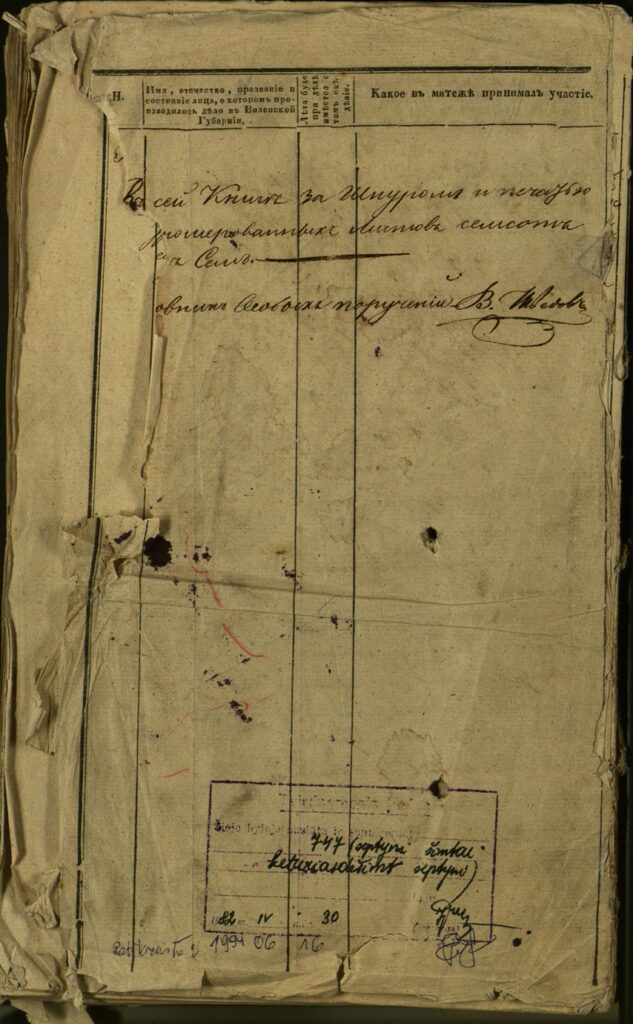 Н.
Имя, отечество, прозваніе и
состояніе лица, о которомъ про-
изводилось дѣло въ Виленской
Губерніи.
Лѣта буде
при дѣлѣ
имѣется о
томъ свѣ-
дѣніе.
Какое въ мятежѣ принималъ участіе.
сей Книгѣ за Шнуромъ и печатью
нумерованныхъ листовъ семсотъ
Семь.
овникъ Особыхъ порученій В.
747 (septyni šimtai
keturiasdešimt septyni)
1982 m. IV 30
1991 06 16